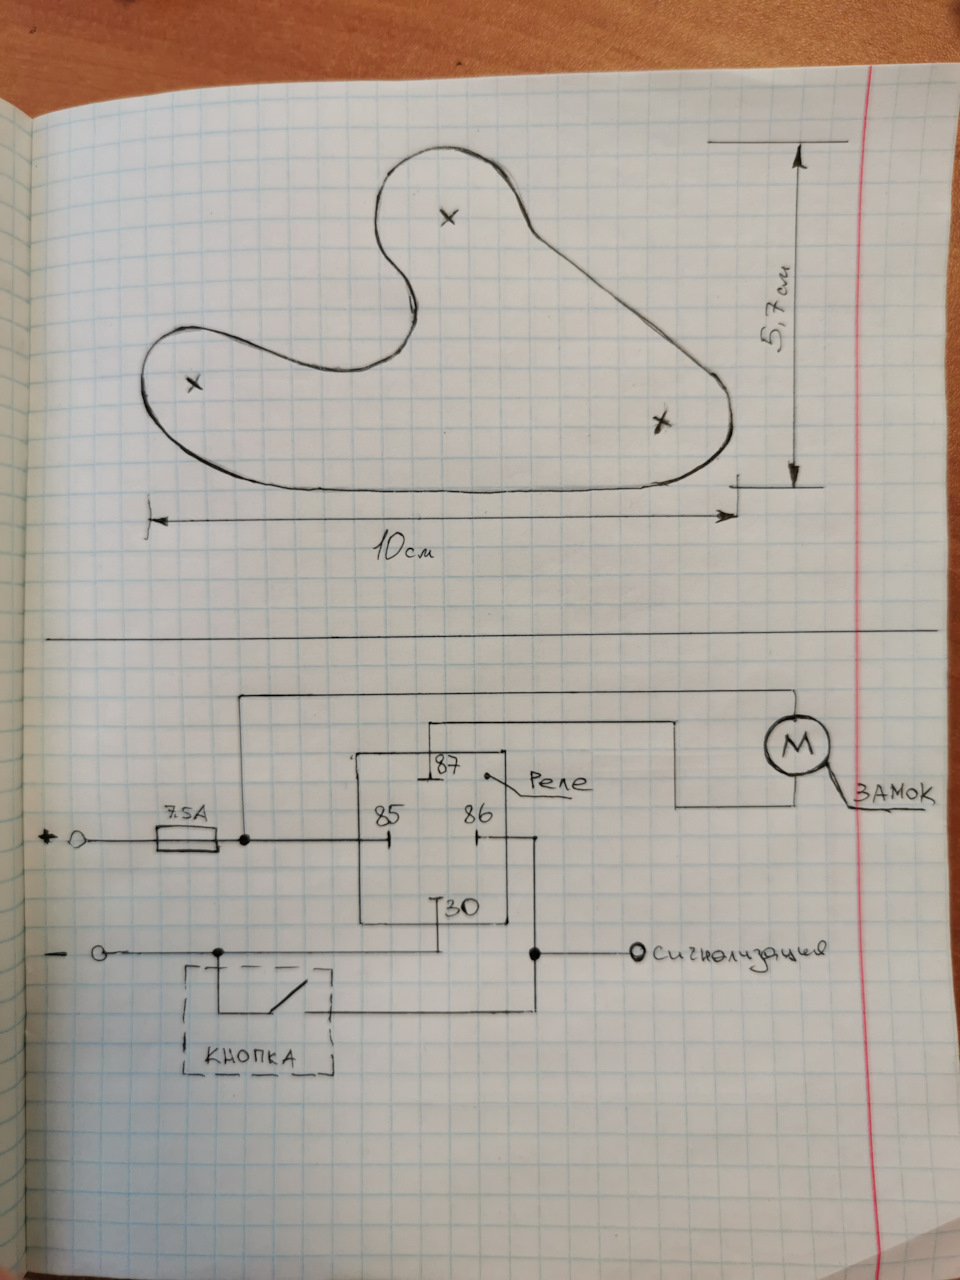 5,7см
10см
87
Реле
7.5А
85
86
М
ЗАМОК
+
30
−
сигнализация
КНОПКА